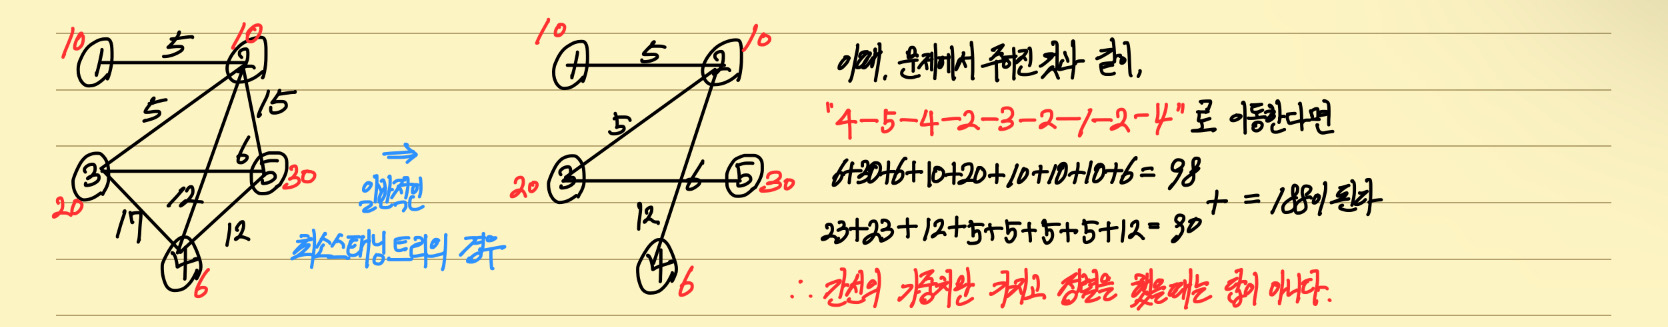 10 5 10
5 15
6
3 5 30
20 12
17 12
4
6
⇒
일반적인
최소스패닝 트리의 경우
10 5 10
1 2
5
20 3 6 5 30
12
4
6
이때, 문제에서 주어진 것과 같이,
"4-5-4-2-3-2-1-2-4"로 이동한다면
6+30+6+10+20+10+10+10+6 = 98
23+23+12+5+5+5+5+12 = 90
+ = 188이 된다
∴ 간선의 가중치만 가지고 정렬을 했을때는 답이 아니다.